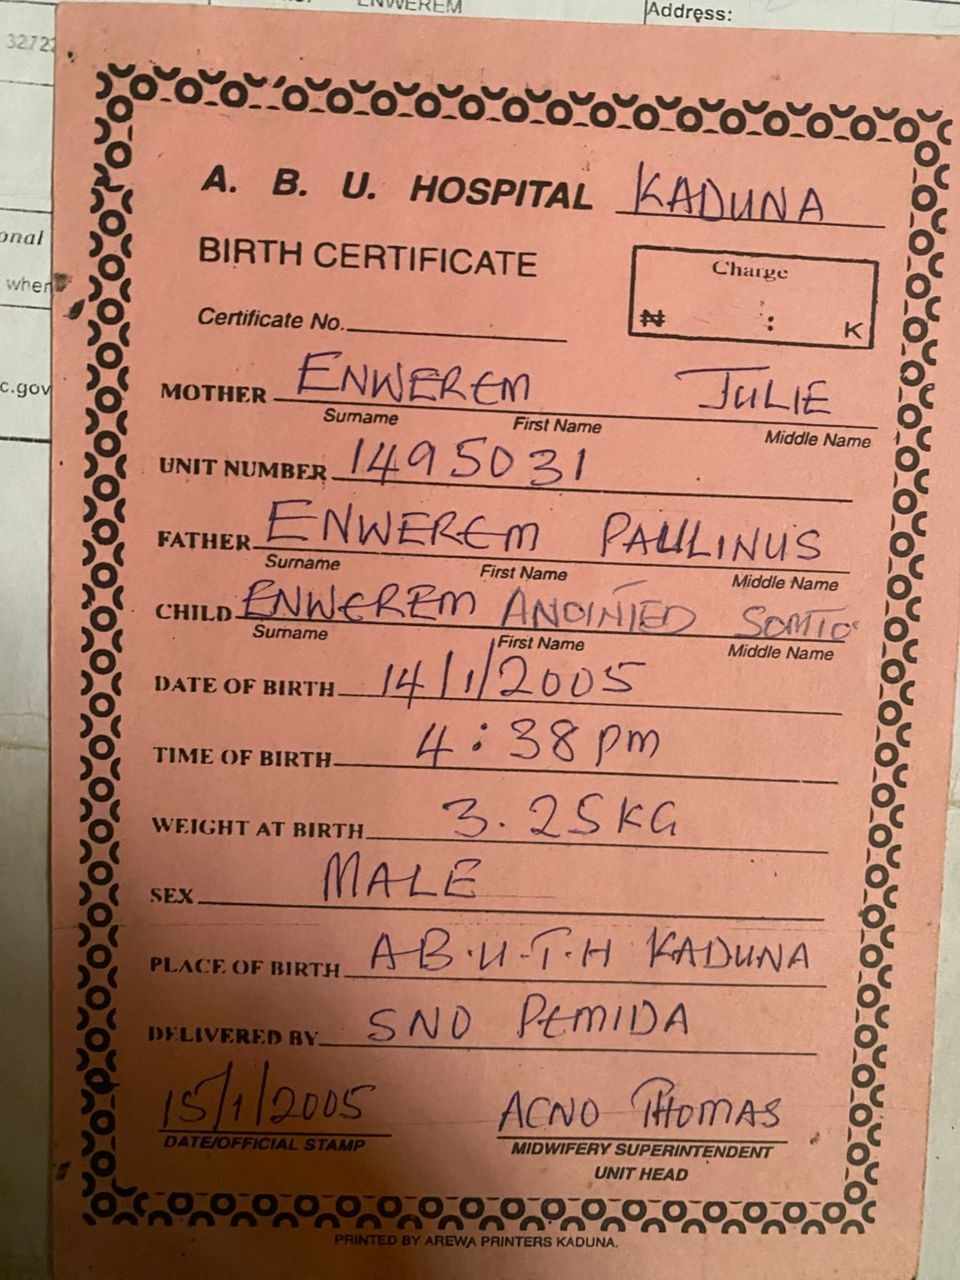 ENWEREM
Address:
3272
onal
when
c.gov
A. B. U. HOSPITAL KADUNA
BIRTH CERTIFICATE
Charge
₦ : K
Certificate No.
MOTHER ENWEREM JULIE
Surname First Name Middle Name
UNIT NUMBER 1495031
FATHER ENWEREM PAULINUS
Surname First Name Middle Name
CHILD ENWEREM ANOINTED SOMTO
Surname First Name Middle Name
DATE OF BIRTH 14/1/2005
TIME OF BIRTH 4:38pm
WEIGHT AT BIRTH 3.25KG
SEX MALE
PLACE OF BIRTH A.B.U.T.H KADUNA
DELIVERED BY SNO PEMIDA
15/1/2005 ACNO THOMAS
DATE/OFFICIAL STAMP MIDWIFERY SUPERINTENDENT
UNIT HEAD
PRINTED BY AREWA PRINTERS KADUNA.